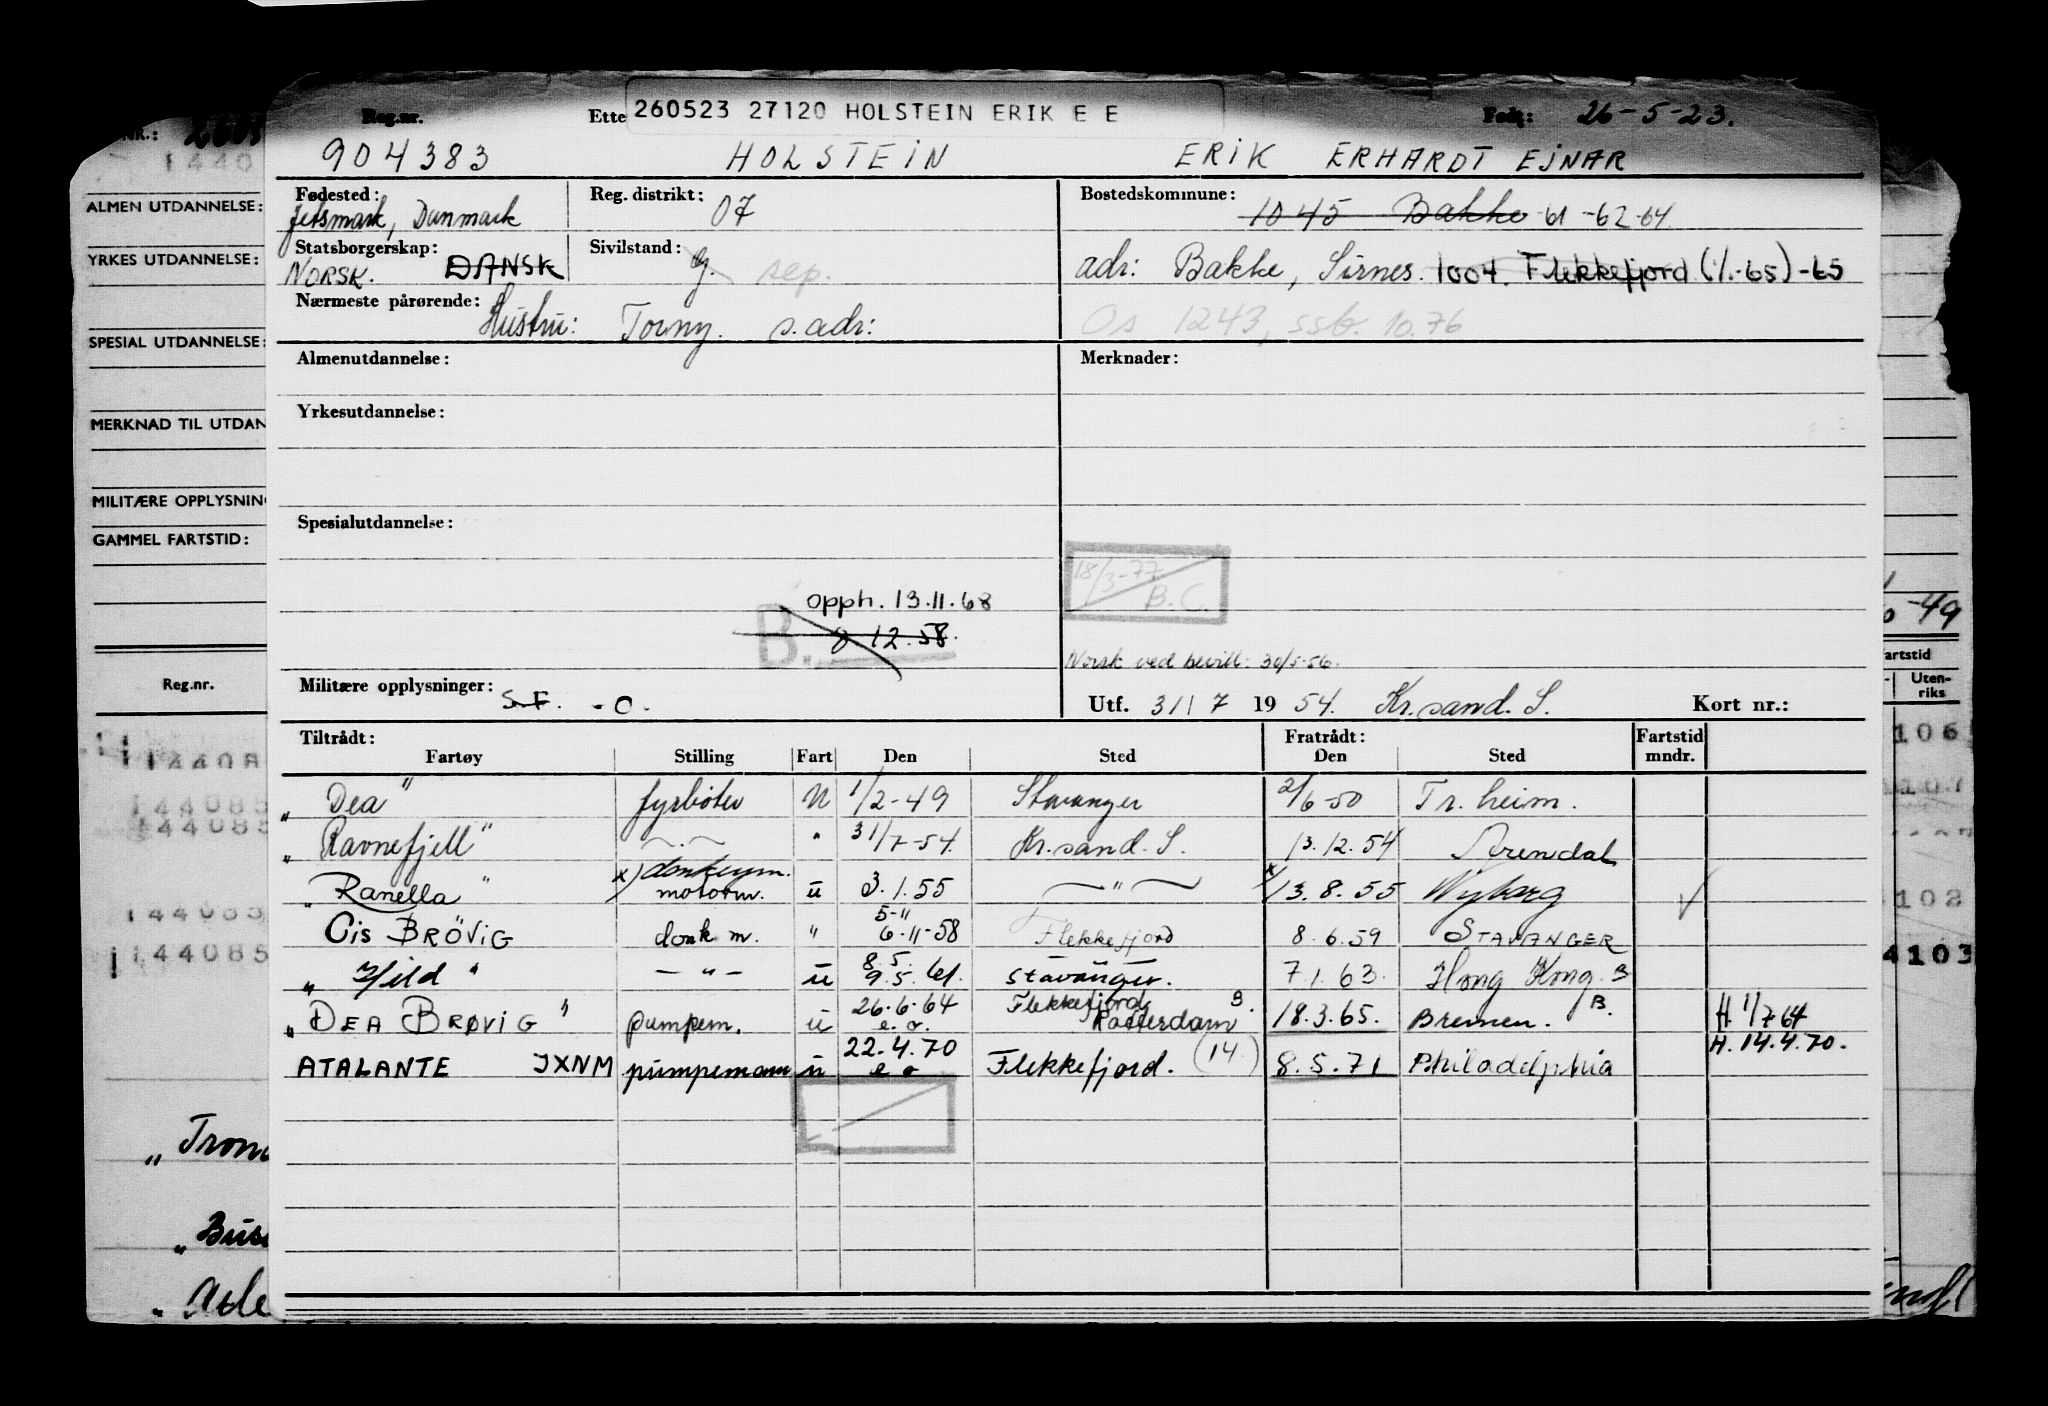 Reg.nr. Ette 260523 27120 HOLSTEIN ERIK E E Født: 26-5-23.
904383 HOLSTEIN ERIK ERHARDT EJNAR
Fødested: Jetsmark, Danmark Reg. distrikt: 07 Bostedskommune: 1045 Bakke 61 -62-64
Statsborgerskap: NORSK. DANSK Sivilstand: G. sep. adr: Bakke, Sirnes. 1004. Flekkefjord (1/1-65) -65
Nærmeste pårørende: Hustru: Torny. s. adr: Os 1243, ssb. 10.76
Almenutdannelse: Merknader:
Yrkesutdannelse:
Spesialutdannelse:
18/3-77 B.C.
opph. 13.11.68
B. 8 12.58.
Norsk ved bevill: 30/5-56.
Militære opplysninger: S.F. -O. Utf. 31/7 1954. Kr.sand. S. Kort nr.:
Tiltrådt: Fratrådt: Fartstid
Fartøy Stilling Fart Den Sted Den Sted mndr.
„Dea" fyrbøter N 1/2-49 Stavanger 2/6-50 Tr.heim.
„Ravnefjell" -"- " 31/7-54 Kr.sand. S. 13.12.54 Arendal
x) donkeym.
„Ranella" motorm. u 3.1.55 -"- x) 13.8.55 Nyborg
5-11
Cis BRÖViG donk m. " 6-11-58 Flekkefjord 8.6.59 STAVANGER
8.5.
„Hild" -"- u 9.5.61. Stavanger. 7.1.63. Hong Kong. B
26.6.64 Flekkefjord B.
„DEA BRØViG" pumpem. u e.o. Rotterdam 18.3.65. Bremen. B. H. 1/7 64
22.4.70 H. 14.4.70.
ATALANTE JXNM pumpemann u e o Flekkefjord. (14.) 8.5.71 Philadelphia
NR.:
1440
ALMEN UTDANNELSE:
YRKES UTDANNELSE:
SPESIAL UTDANNELSE:
MERKNAD TIL UTDAN
MILITÆRE OPPLYSNING
GAMMEL FARTSTID:
Reg.nr.
144085
144085
144085
-49
artstid
Uten-
riks
106
107
102
4103
„Tron